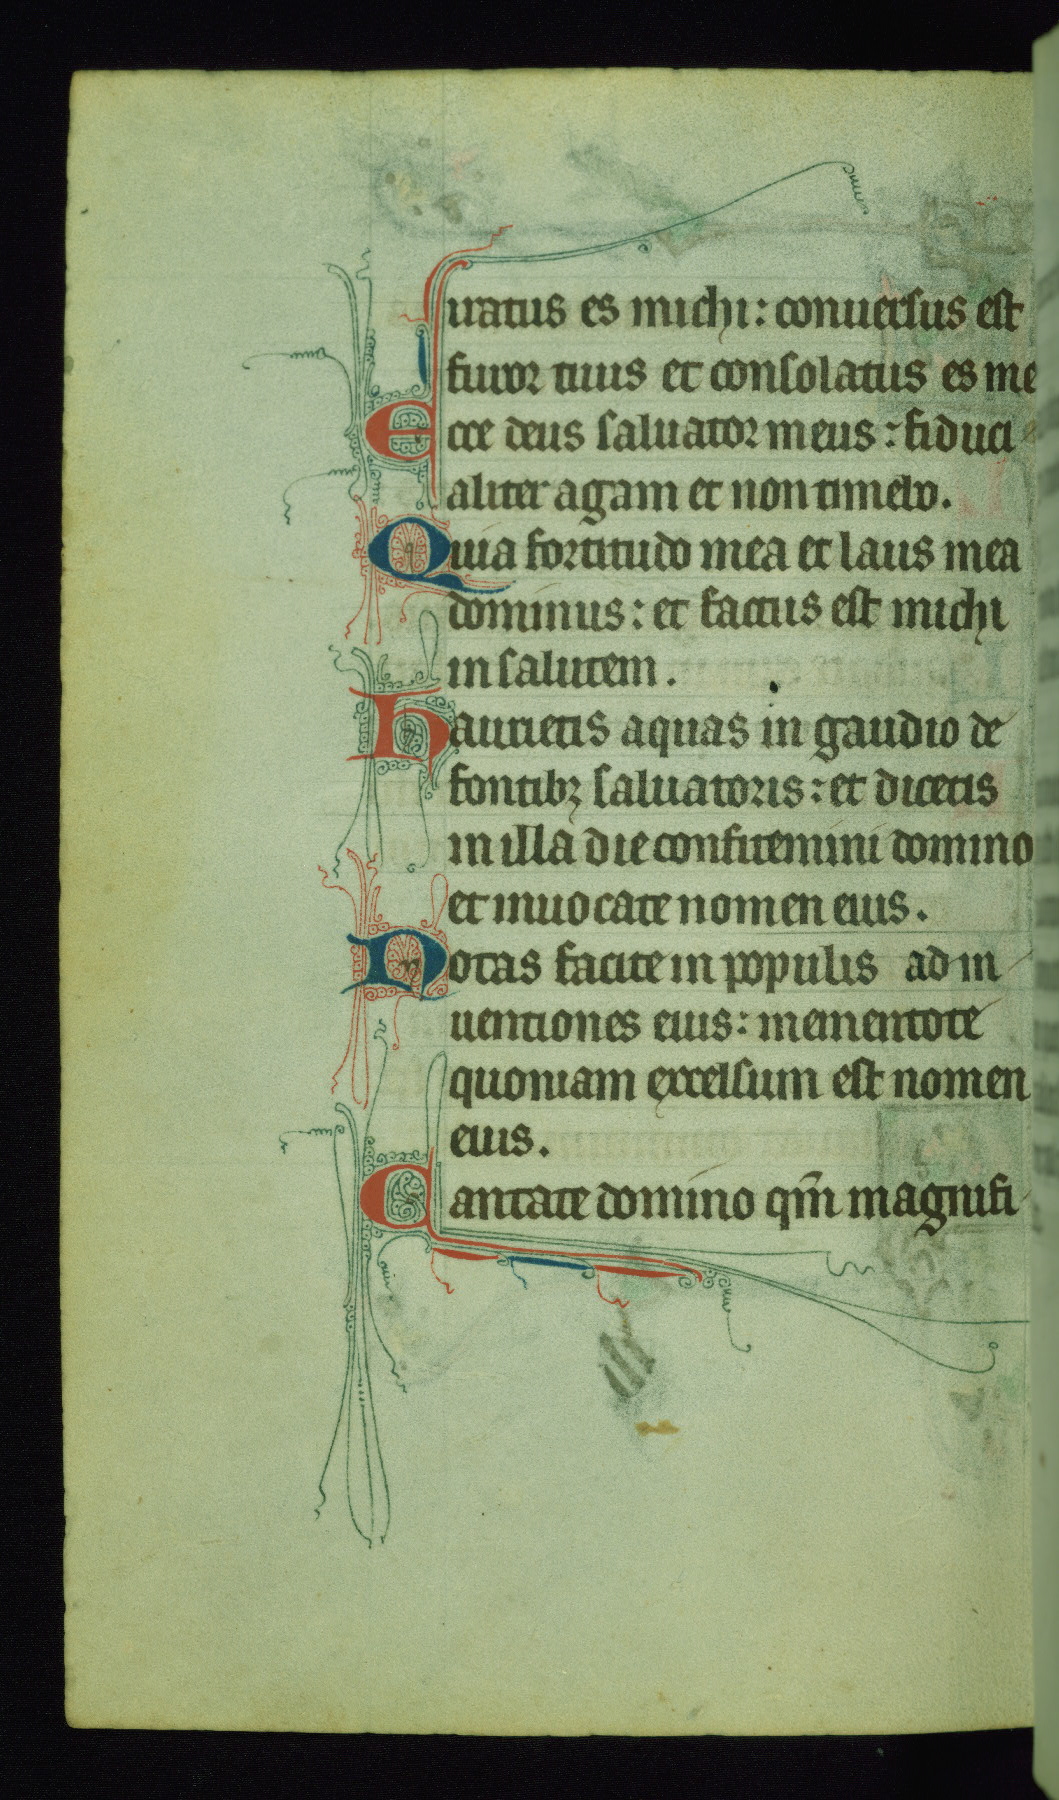 uratus es michi: conuersus est
furor tuus et consolatus es me
Ecce deus saluator meus: fiduci
aliter agam et non timebo.
Quia fortitudo mea et laus mea
dominus: et factus est michi
in salutem.
Haurietis aquas in gaudio de
fontibꝫ saluatoris: et dicetis
in illa die confitemini domino
et inuocate nomen eius.
Notas facite in populis ad in
uentiones eius: mementote
quoniam excelsum est nomen
eius.
Cantate domino qm̄ magnifi